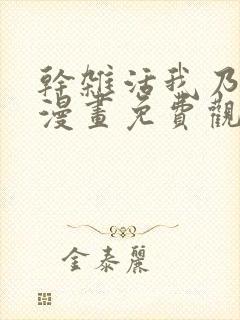 幹雜活我乃
漫畫免費觀
金泰麗